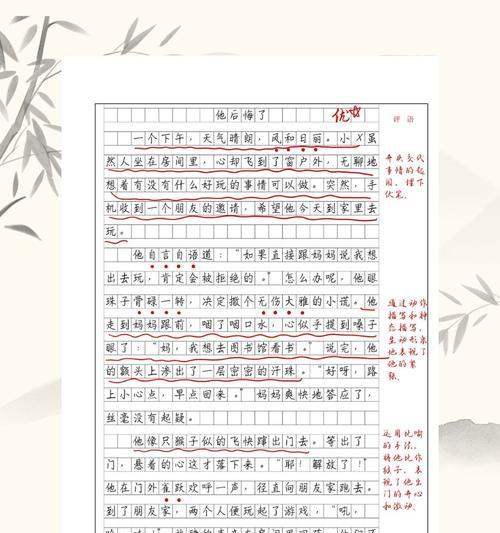 他后悔了
优
评语
一个下午，天气晴朗，风和日丽。小X虽
然人坐在房间里，心却飞到了窗户外，无聊地
想着有没有什么好玩的事情可以做。突然，手
机收到一个朋友的邀请，希望他今天到家里去
玩。
开头交代
事情的起
因，埋下
伏笔。
他自言自语道：“如果直接跟妈妈说我想
出去玩，肯定会被拒绝的。”怎么办呢，他眼
珠子骨碌一转，决定撒个无伤大雅的小谎。他
走到妈妈跟前，咽了咽口水，心似乎提到嗓子
眼了：“妈，我想去图书馆看书。”说完，他
的额头上渗出了一层密密的汗珠。“好呀，路
上小心点，早点回来。”妈妈爽快地答应了，
丝毫没有起疑。
通过动作
描写和神
态描写，
生动形象
地表现了
他的紧
张。
他像只猴子似的飞快蹿出门去。等出了
门，悬着的心这才落下来。“耶！解放了！”
他在门外雀跃欢呼一声，径直向朋友家跑去。
到了朋友家，两个人便玩起了游戏，“吼，
运用比喻
的手法，
将他比作
猴子，表
现了他出
门的开心
和激动。